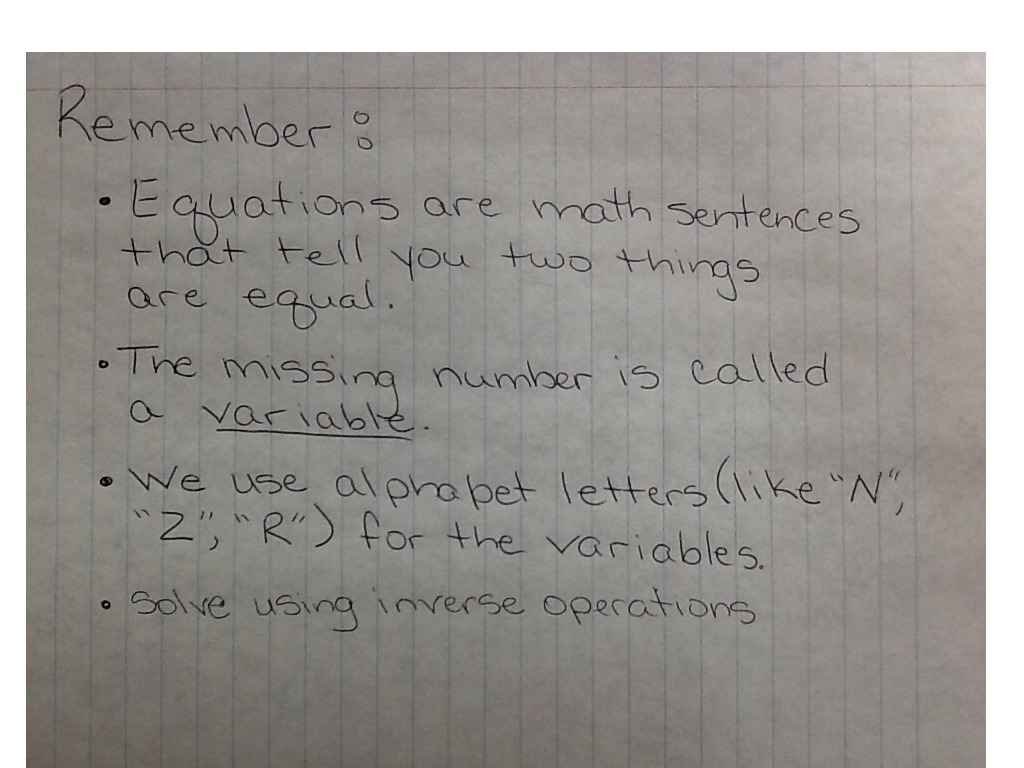 Remember:
• Equations are math sentences
that tell you two things
are equal.
• The missing number is called
a variable.
• We use alphabet letters (like "N",
"Z", "R") for the variables.
• Solve using inverse operations